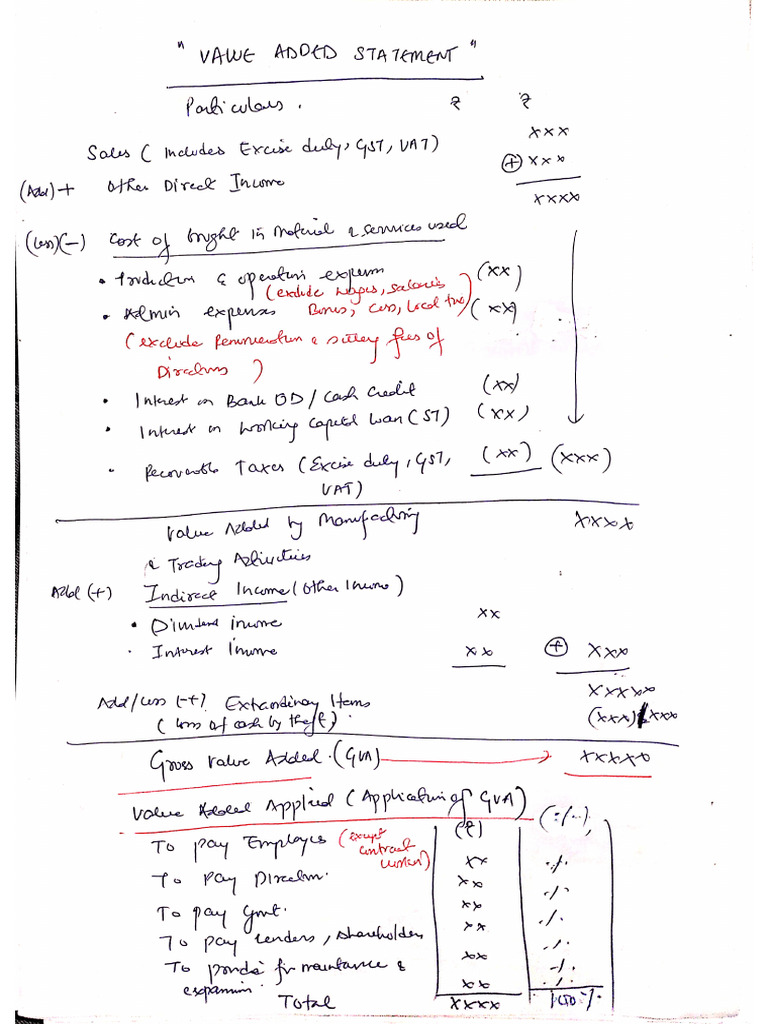 " VALUE ADDED STATEMENT "
Particulars. ₹ ₹
Sales ( Includes Excise duty, GST, VAT) xxx
(Add) + Other Direct Income ⊕ xxx
xxxx
(Less)(-) Cost of bought in material & services used
• Production & operation expenses (xx)
(exclude wages, salaries
• Admin expenses Bonus, Cess, local tax) (xx)
(exclude Remuneration & sitting fees of
Directors )
• Interest on Bank OD / Cash Credit (xx)
• Interest on Working Capital Loan (ST) (xx)
• Recoverable Taxes (Excise duty, GST, (xx) (xxx)
VAT)
Value Added by Manufacturing xxxx
& Trading Activities
Add (+) Indirect Income (Other Income)
• Dividend income xx
• Interest Income xx ⊕ xxx
xxxxx
Add/Less (-+) Extraordinary Items
( Loss of cash by theft). (xxx)/xxx
Gross Value Added. (GVA) → xxxxx
Value Added Applied (Application of GVA)
(₹) (%)
To pay Employees (except
contract
workers) xx %
To Pay Directors. xx %
To pay Gmt. xx %
To pay lenders, shareholders xx %
To provide for maintance & xx %
expansion. xx %
Total xxxx 100 %